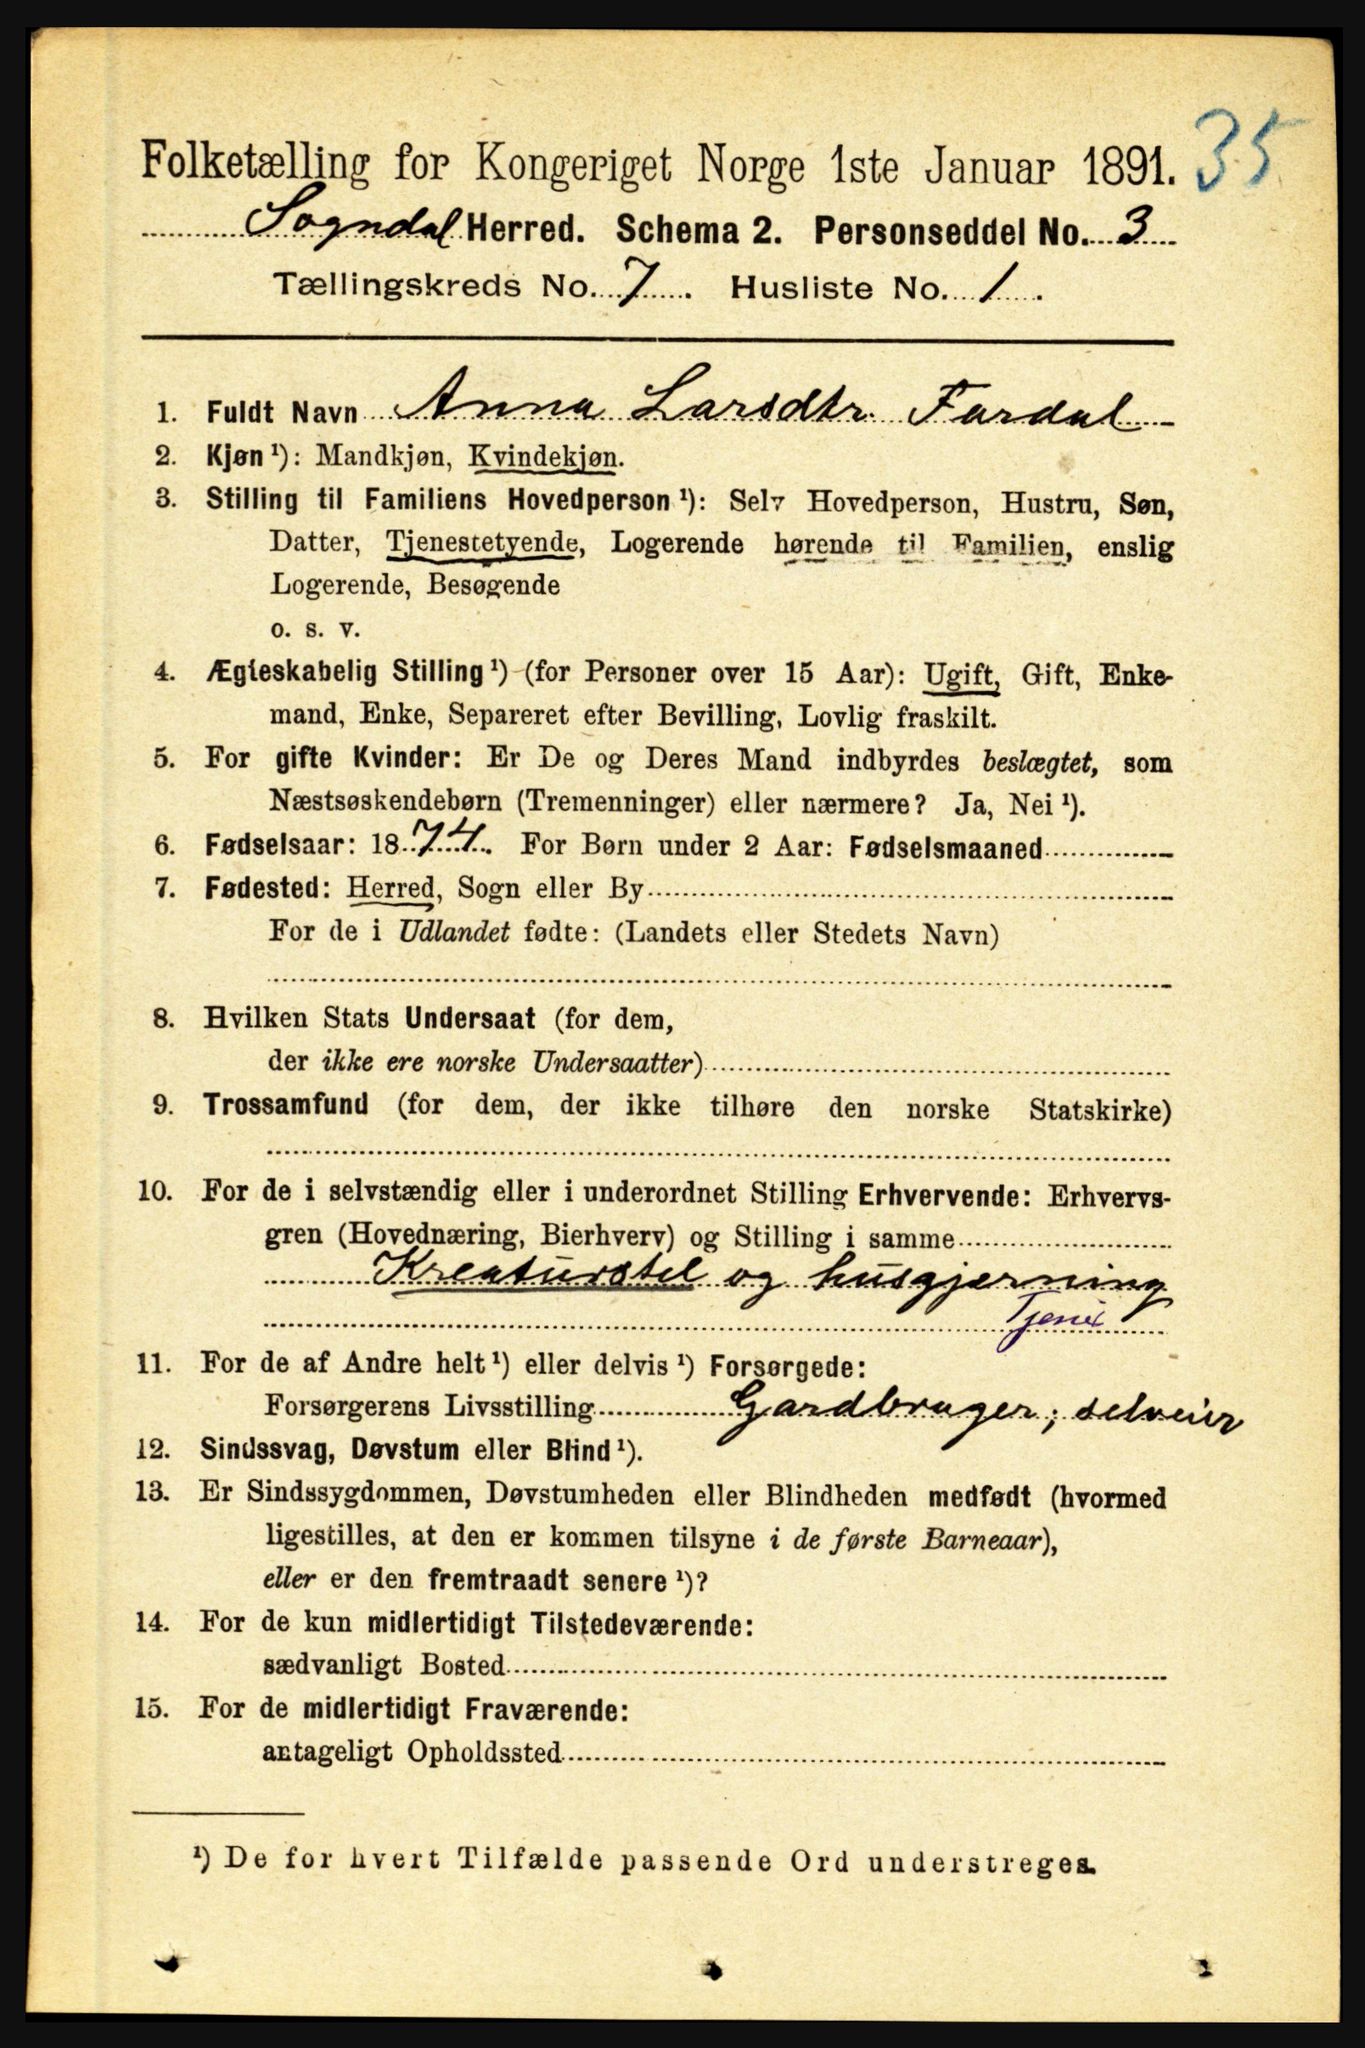 35
Folketælling for Kongeriget Norge 1ste Januar 1891.
Sogndal Herred. Schema 2. Personseddel No. 3
Tællingskreds No. 7. Husliste No. 1.
1. Fuldt Navn Anna Larsdtr. Fardal
2. Kjøn ¹): Mandkjøn, Kvindekjøn.
3. Stilling til Familiens Hovedperson ¹): Selv Hovedperson, Hustru, Søn,
Datter, Tjenestetyende, Logerende hørende til Familien, enslig
Logerende, Besøgende
o. s. v.
4. Ægteskabelig Stilling ¹) (for Personer over 15 Aar): Ugift, Gift, Enke-
mand, Enke, Separeret efter Bevilling, Lovlig fraskilt.
5. For gifte Kvinder: Er De og Deres Mand indbyrdes beslægtet, som
Næstsøskendebørn (Tremenninger) eller nærmere? Ja, Nei ¹).
6. Fødselsaar: 1874. For Børn under 2 Aar: Fødselsmaaned
7. Fødested: Herred, Sogn eller By
For de i Udlandet fødte: (Landets eller Stedets Navn)
8. Hvilken Stats Undersaat (for dem,
der ikke ere norske Undersaatter)
9. Trossamfund (for dem, der ikke tilhøre den norske Statskirke)
10. For de i selvstændig eller i underordnet Stilling Erhvervende: Erhvervs-
gren (Hovednæring, Bierhverv) og Stilling i samme
Kreaturstel og husgjerning
Tjener
11. For de af Andre helt ¹) eller delvis ¹) Forsørgede:
Forsørgerens Livsstilling Gardbruger, selveier
12. Sindssvag, Døvstum eller Blind ¹).
13. Er Sindssygdommen, Døvstumheden eller Blindheden medfødt (hvormed
ligestilles, at den er kommen tilsyne i de første Barneaar),
eller er den fremtraadt senere ¹)?
14. For de kun midlertidigt Tilstedeværende:
sædvanligt Bosted
15. For de midlertidigt Fraværende:
antageligt Opholdssted
¹) De for hvert Tilfælde passende Ord understreges.